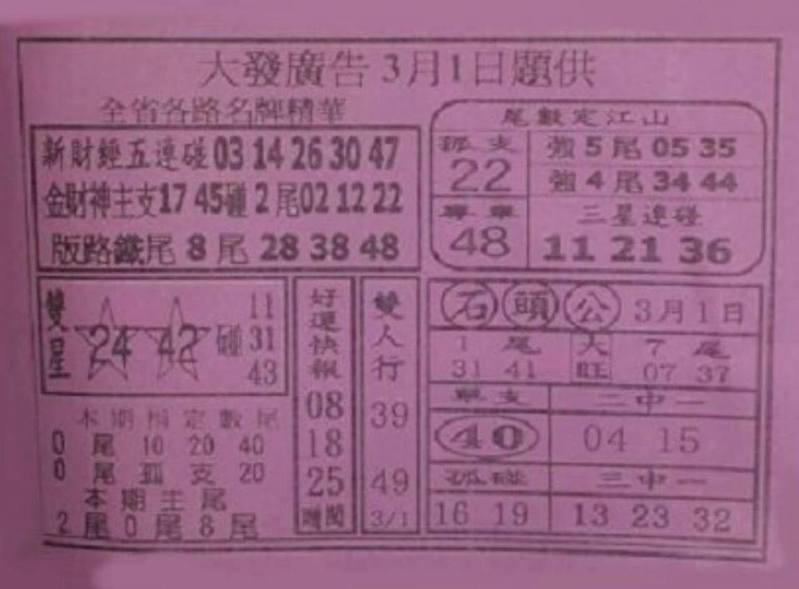 大發廣告3月1日題供
全省各路名牌精華
新財經五連碰03 14 26 30 47
金財神主支17 45碰2尾02 12 22
版路鐵尾8尾28 38 48
尾數定江山
孤支
22
強5尾05 35
強4尾34 44
48
三星連碰
11 21 36
雙星
24 42
碰
11
31
43
本期指定數尾
0尾10 20 40
0尾孤支20
本期主尾
2尾0尾8尾
好運快報
08
18
25
雙人行
39
49
3/1
石頭公 3月1日
1尾
31 41
大旺
7尾
07 37
單支
40
二中一
04 15
孤碰
16 19
三中一
13 23 32